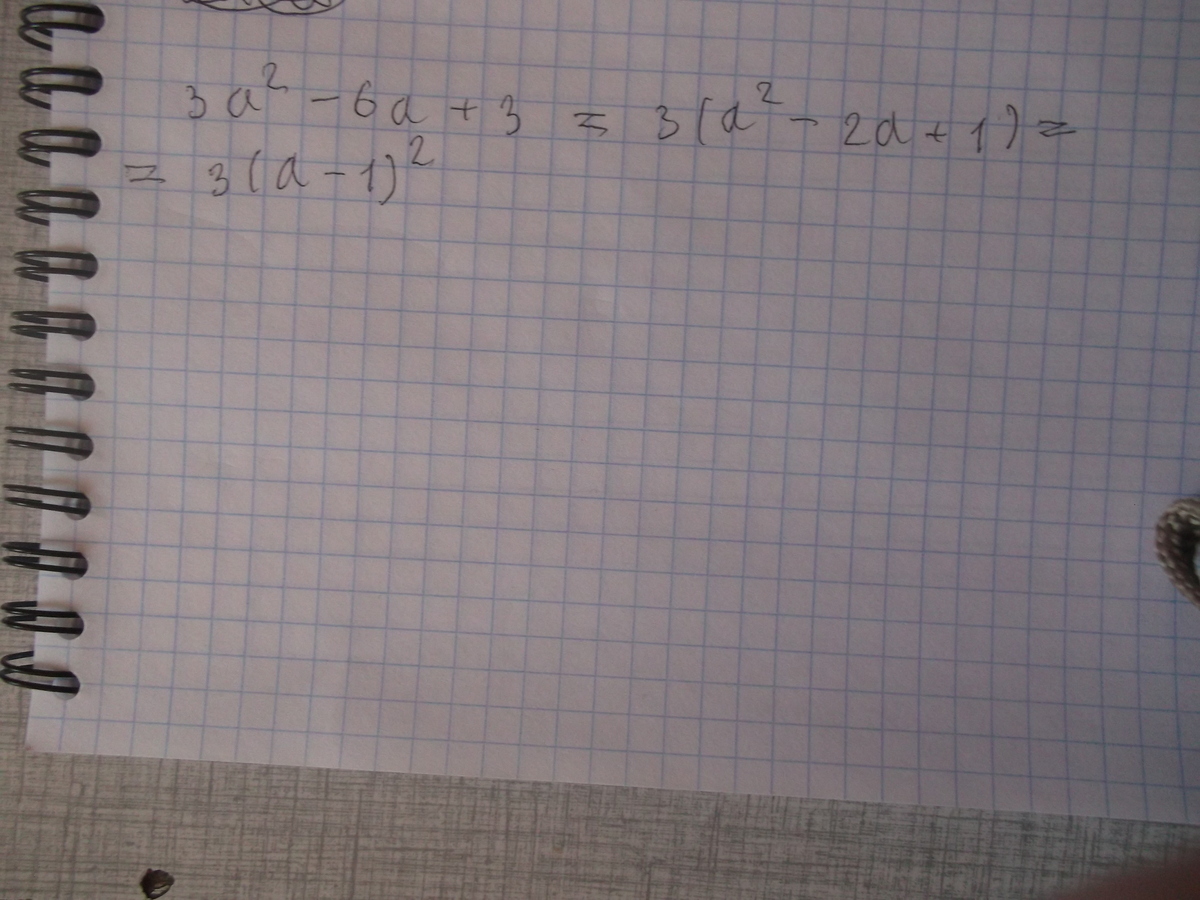 3a² - 6a + 3 = 3(a² - 2a + 1) =
= 3(a - 1)²